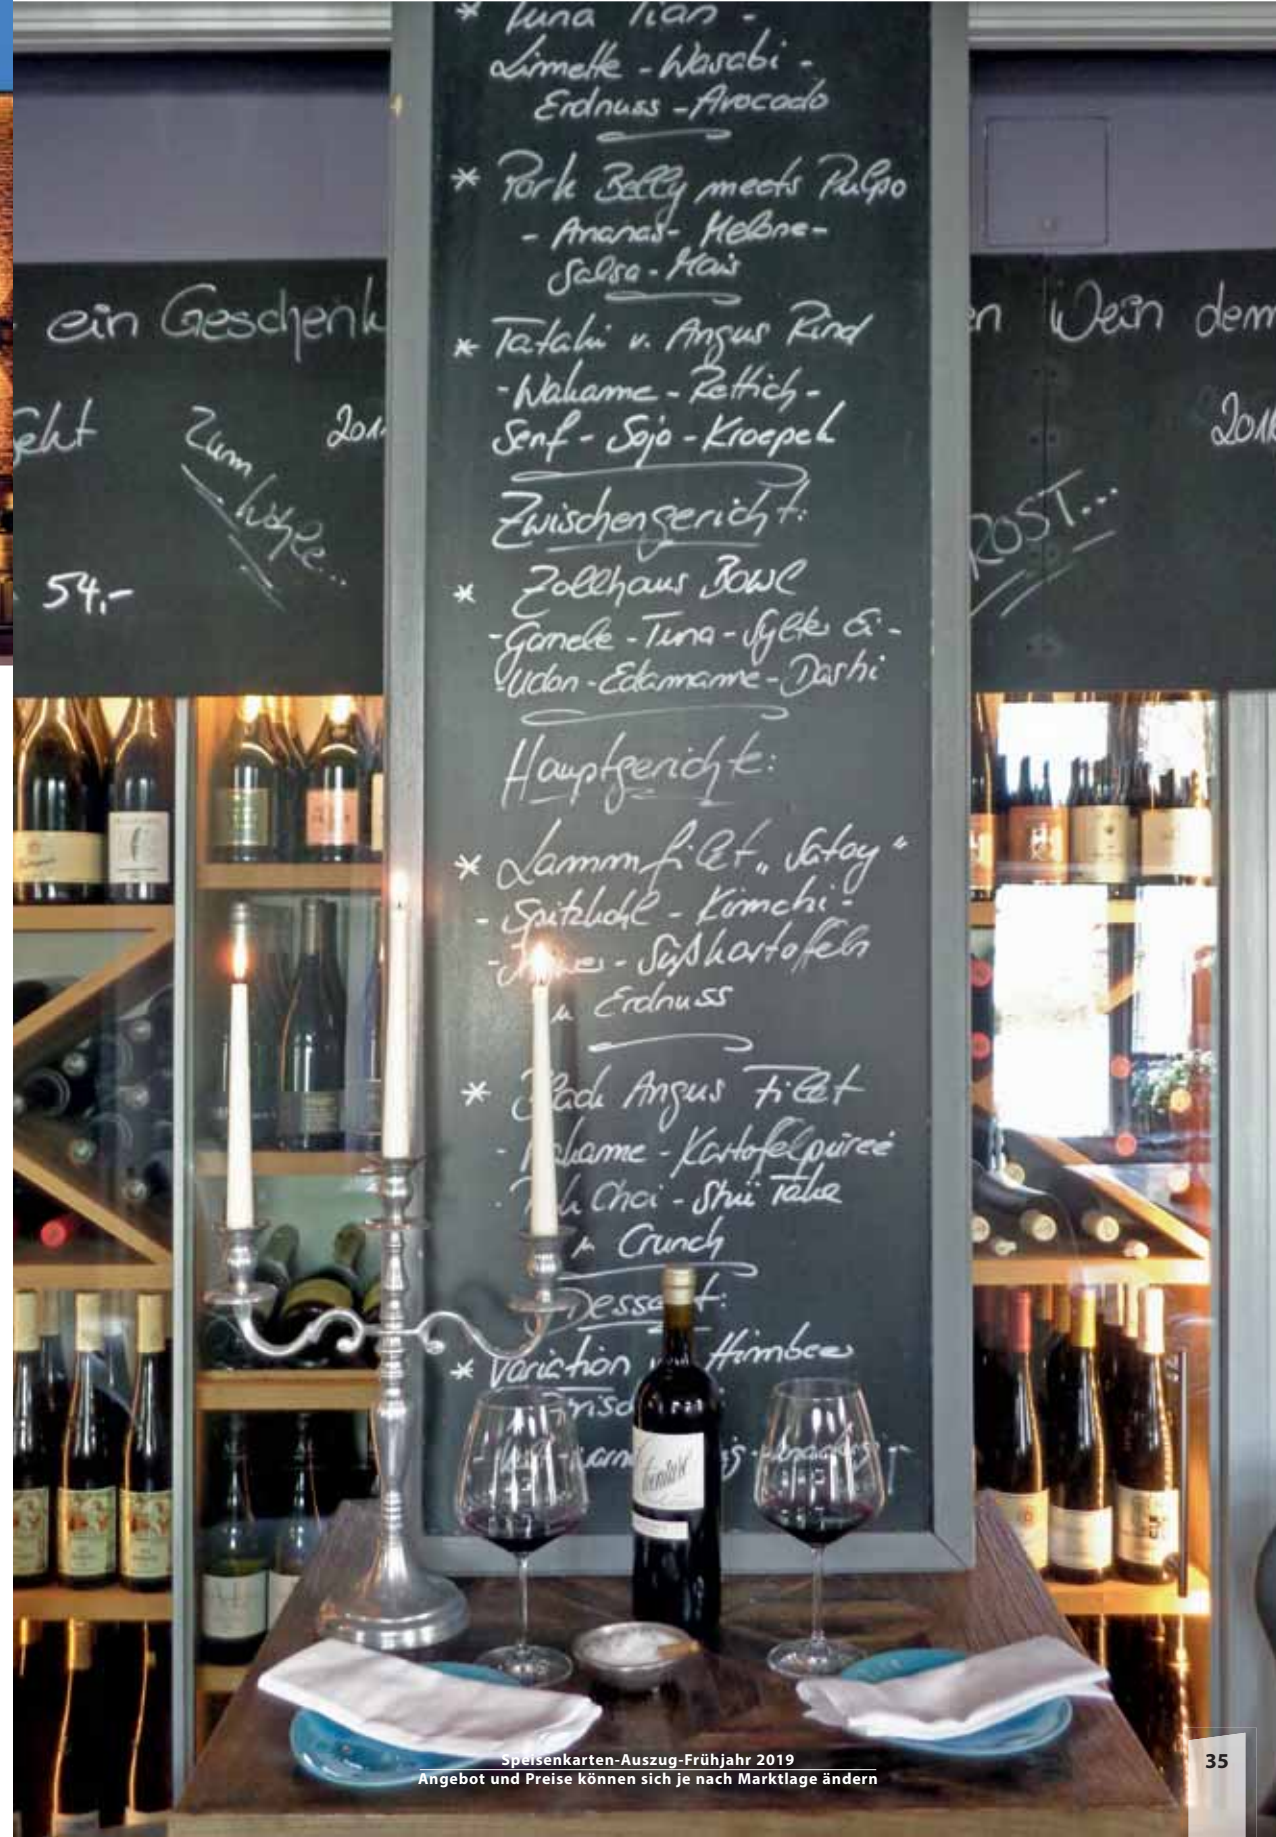 * Tuna Tian -
Limette - Wasabi -
Erdnuss - Avocado
* Pork Belly meets Pulpo
- Ananas - Melone -
Salsa - Mais
* Tataki v. Angus Rind
- Wakame - Rettich -
Senf - Soja - Kroepek
Zwischengericht:
* Zollhaus Bowl
- Garnele - Tuna - Sylter Ei -
- Udon - Edamame - Dashi
Hauptgerichte:
* Lammfilet „Satay“
- Spitzkohl - Kimchi -
- Süßkartoffeln
Erdnuss
* Black Angus Filet
- Wakame - Kartoffelpüree
- Pak Choi - Shii Take
Crunch
Dessert:
* Variation Himbeer
ein Geschenk
Zum 201
54,-
Wohle..
en Wein dem
201
ROST...
Speisenkarten-Auszug-Frühjahr 2019
Angebot und Preise können sich je nach Marktlage ändern
35